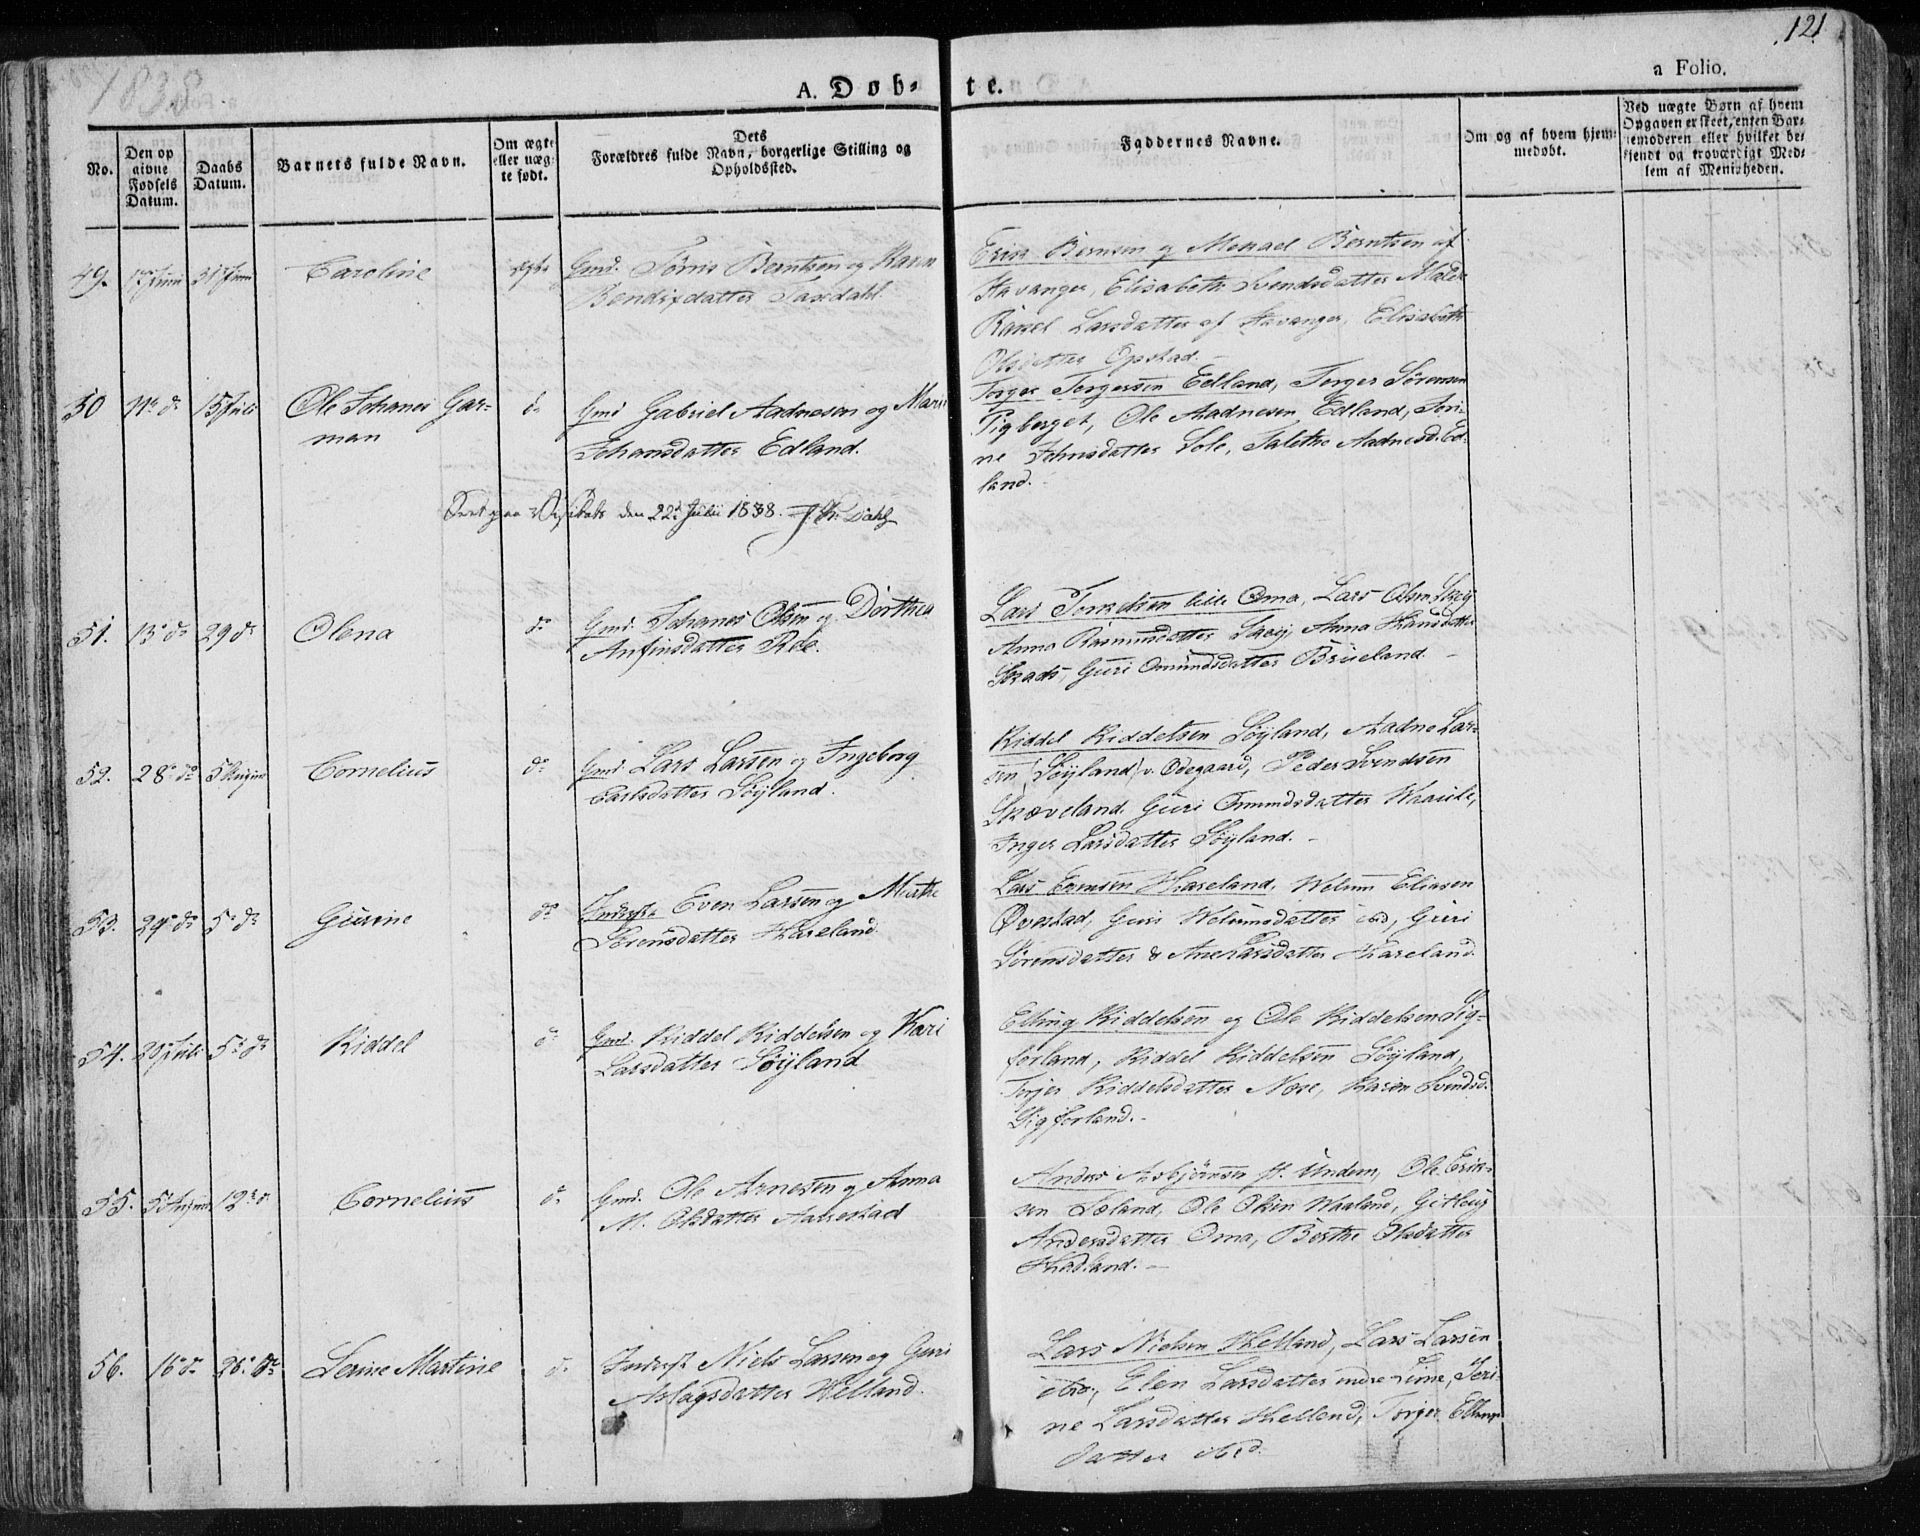 121
1838
A. Døb-te.
a Folio.
No.
Den op
givne
Fødsels
Datum.
Daabs
Datum.
Barnets fulde Navn.
Om ægte
eller uæg-
te født.
Dets
Forældres fulde Navn, borgerlige Stilling og
Opholdssted.
Faddernes Navne.
Om og af hvem hjem-
medøbt.
Ved uægte Børn af hvem
Opgaven er skeet, enten Bar-
nemoderen eller hvilket be-
kjendt og troværdigt Med-
lem af Menigheden.
49. Caroline
Gmd. Tönis Berntsen og Karen
Bendixdatter
Erik Bernsen og Mikael Berntsen af
Stavanger, Elisabeth Svendsdatter
Rakel Larsdatter af Stavanger, Elisabeth
Olsdatter Opstad.
50 11te d 15 Juli Ole Johanes Gar-
man
do
Gmd Gabriel Aadnesen og Maria
Johansdatter Edland.
Torger Torgersen Edland, Torger Sörensen
Tigberget, Ole Aadnesen Edland, Seri-
ne Johnsdatter Sole, Talette Aadnesd. Ed-
land.
den 22de Julii 1838. Dahl
51. 13de do 29 do Olena do
Gmd. Johanes Olsen og Dorthea
Anfinsdatter Roe.
Lars Torkelsen lille Oma, Lars Olsen Skeij
Anna Rasmusdatter Skeij, Anna Hansdatter
Guri Omundsdatter Brueland.
52. 28de do 5 August Cornelius do
Gmd. Lars Larsen og Ingeborg
Carlsdatter Söyland.
Kiddel Kiddelsen Söyland, Aadne Lar-
sen (Söyland) v. Ödegaard, Peder Svendsen
Skæveland, Guri Omundsdatter
Inger Larsdatter Söyland.
53. 29de do 5te do Gurine do
Inderst Even Larsen og Merthe
Sörensdatter Haseland
Lars Evensen Haseland, Welum Eliasen
Överstad, Guri Welumsdatter ibd, Guri
Sörensdatter & Ane Larsdatter Haseland
54. 20 Juli 5te do Kiddel do
Gmd. Kiddel Kiddelsen og Kari
Larsdatter Söyland
Elling Kiddelsen og Ole Kiddelsen Sig-
forland, Kiddel Kiddelsen Söyland,
Torjer Kiddelsdatter Nose, Karen Svendsd.
Sigforland.
55. 5 August 12te do Cornelius do
Gmd. Ole Arnesen og Anna
M. Olsdatter Aarrestad
Anders Asbjörnsen Undem, Ole Erik-
sen Soland, Ole Olsen Waaland,
Andersdatter Oma, Berthe Olsdatter
Hadland.
56. 16 do 26de do Serine Martine do
Inderst Niels Larsen og Guri
Aslagsdatter Helland.
Lars Nielsen Helland, Lars Larsen
ibd., Elen Larsdatter indre Lime, Seri-
ne Larsdatter Helland, Torjer Ellings-
datter ibid.